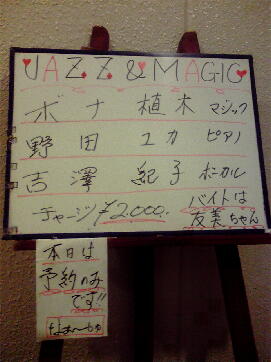 JAZZ & MAGIC
ボナ 植木 マジック
野田 ユカ ピアノ
吉澤 紀子 ボーカル
チャージ ¥2,000.
バイトは
友美ちゃん
本日は
予約のみ
です!!